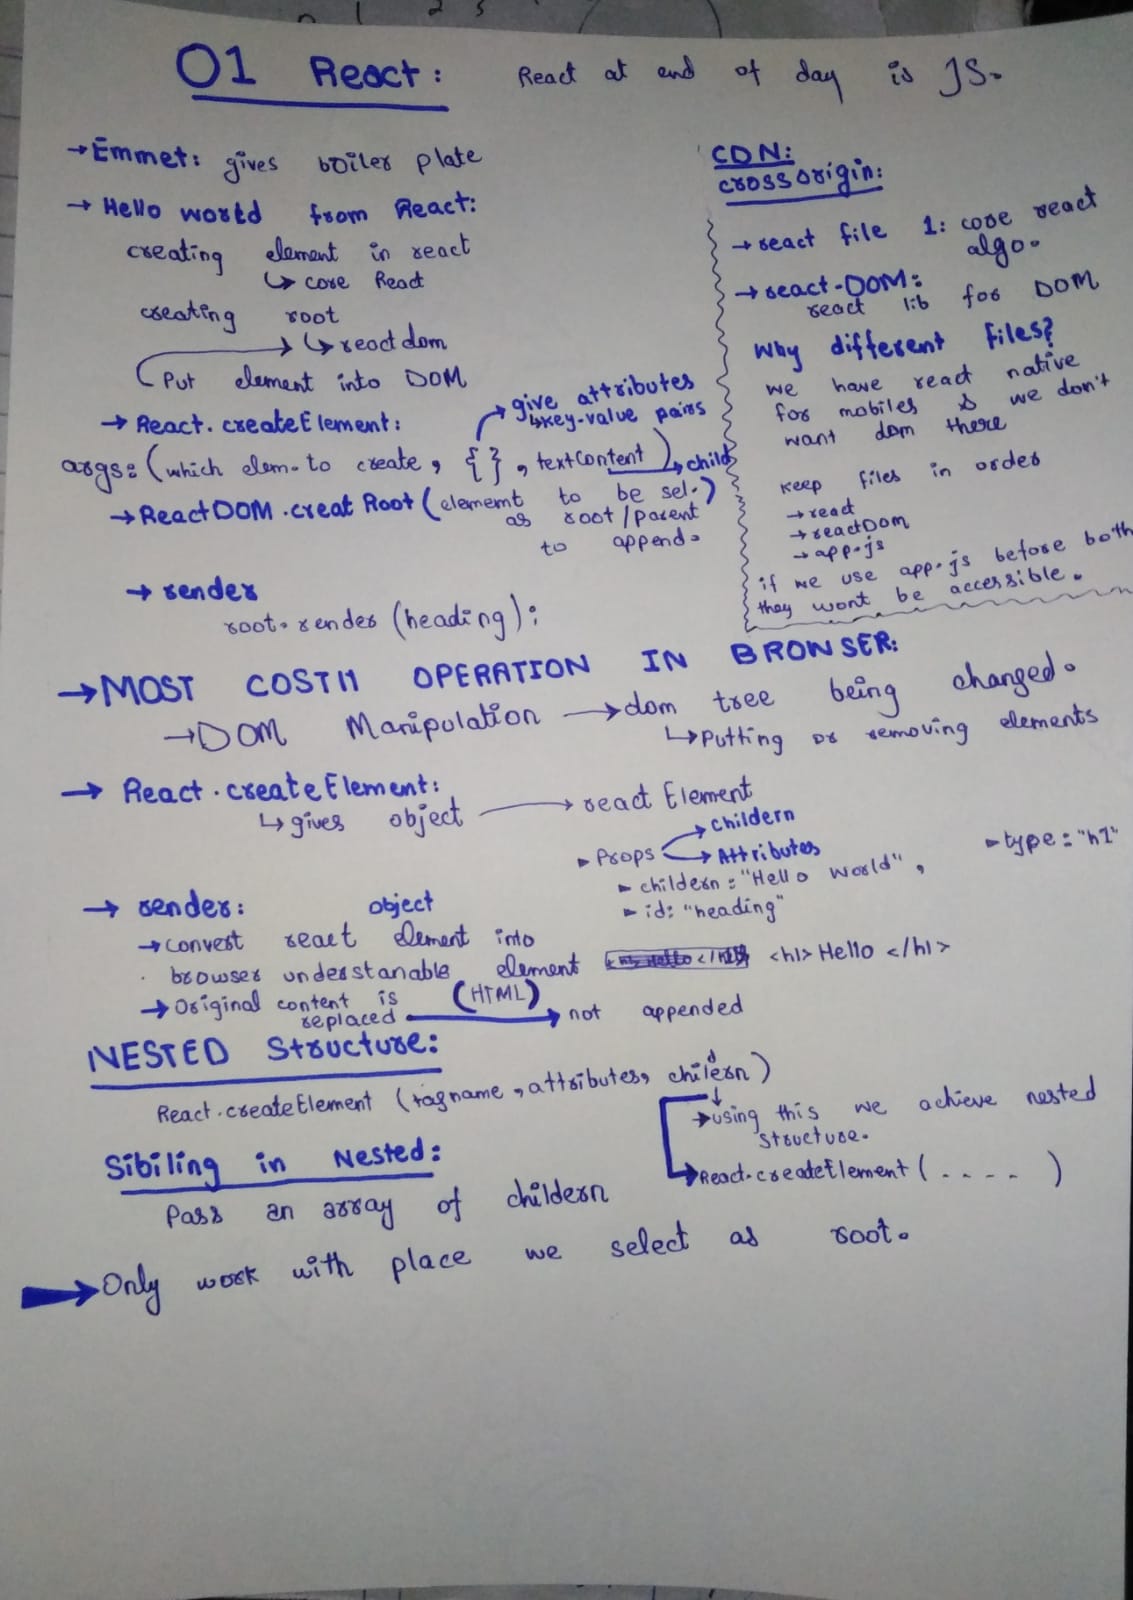 01 React: React at end of day is JS.
→ Emmet: gives boiler plate
→ Hello world from React:
creating element in react
↳ core React
creating root
↳ react dom
Put element into DOM
→ React.createElement:
give attributes
↳ key-value pairs
args: (which elem. to create, { }, textContent) → child
→ ReactDOM.creat Root (element to be sel.)
as root/parent
to append.
→ render
root.render (heading);
CDN:
crossorigin:
→ react file 1: core react
algo.
→ react-DOM:
react lib for DOM
Why different files?
we have react native
for mobiles & we don't
want dom there
Keep files in order
→ react
→ reactDom
→ app.js
if we use app.js before both
they wont be accessible.
→ MOST COSTly OPERATION IN BROWSER:
→ DOM Manipulation → dom tree being changed.
↳ Putting or removing elements
→ React.createElement:
↳ gives object → react Element
▸ Props → childern
→ Attributes
▸ childern: "Hello world", ▸ type: "h1"
▸ id: "heading"
→ render: object
→ convert react element into
browser understanable element <h1> Hello </h1>
(HTML)
→ Original content is
replaced → not appended
NESTED Structure:
React.createElement (tagname, attributes, childern)
→ using this we achieve nested
structure.
→ React.createElement (.... )
Sibiling in Nested:
Pass an array of childern
→ Only work with place we select as root.